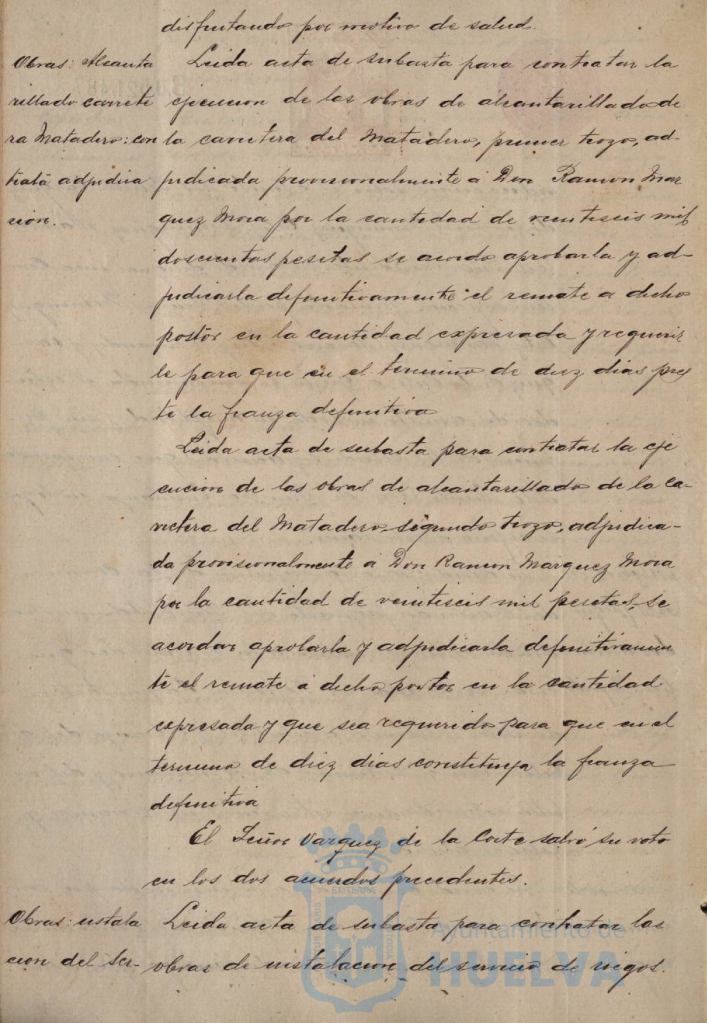 disfrutando por motivo de salud.
Obras: Alcanta
rillado carrete
ra Matadero: con
trata adjudica
cion.
Leida acta de subasta para contratar la
ejecucion de las obras de alcantarillado de
la carretera del Matadero, primer trozo, ad-
judicada provisionalmente á Don Ramon Mar
quez Mora por la cantidad de veintiseis mil
doscientas pesetas se acordo aprobarla y ad-
judicarla definitivamente el remate a dicho
postor en la cantidad expresada y requerir
le para que en el termino de diez dias pres
te la fianza definitiva
Leida acta de subasta para contratar la eje
cucion de las obras de alcantarillado de la ca-
rretera del Matadero, segundo trozo, adjudica-
da provisionalmente á Don Ramon Marquez Mora
por la cantidad de veintiseis mil pesetas, se
acordar aprobarla y adjudicarla definitivamen
te el remate á dicho postor en la cantidad
expresada y que sea requerido para que en el
termino de diez dias constituya la fianza
definitiva
El Señor Vazquez de la Corte salvó su voto
en los dos acuerdos precedentes.
Obras: instala
cion del ser-
Leida acta de subasta para contratar las
obras de instalacion del servicio de riegos.
Ayuntamiento de
HUELVA